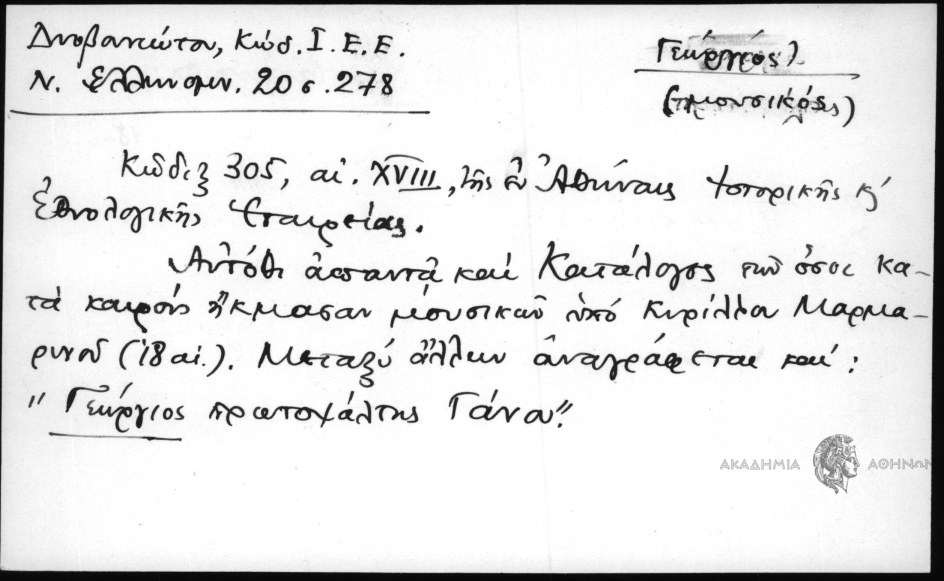 Δυοβουνιώτου, Κώδ. Ι. Ε. Ε.
Ν. Ἑλληνομν. 20 σ. 278
Γεώργιος)
(μουσικός)
Κῶδιξ 305, αἰ. XVIII, τῆς ἐν Ἀθήναις Ἱστορικῆς κ'
Ἐθνολογικῆς Ἑταιρείας.
Αὐτόθι ἀπαντᾷ καὶ Κατάλογος τῶν ὅσοι κα-
τὰ καιροὺς ἤκμασαν μουσικῶν ὑπό Κυρίλλου Μαρμα-
ρινοῦ (18 αἰ.). Μεταξύ ἄλλων ἀναγράφεται καί:
"Γεώργιος πρωτοψάλτης Γάνου".
ΑΚΑΔΗΜΙΑ ΑΘΗΝΩΝ